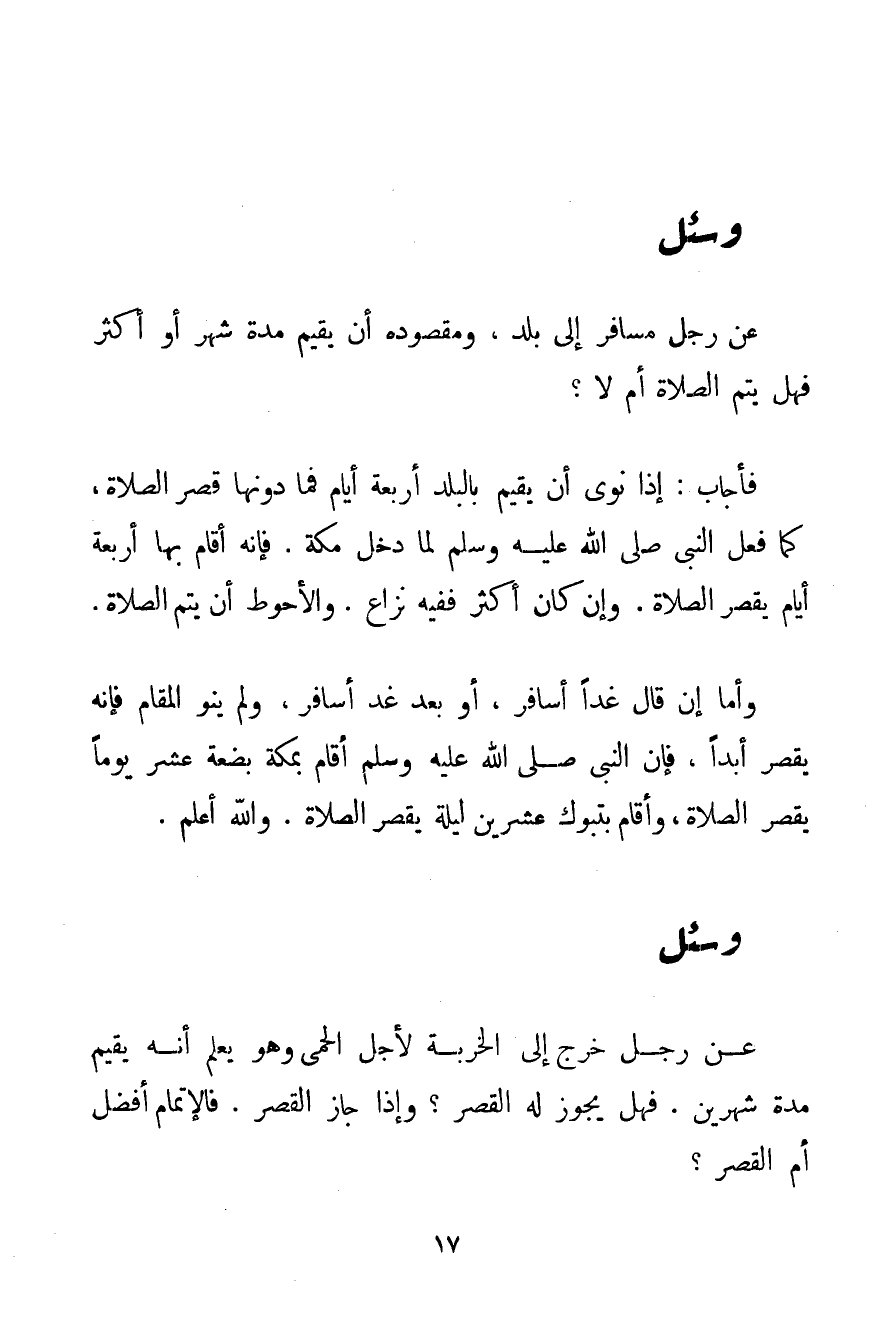 وسئل
عن رجل مسافر إلى بلد ، ومقصوده أن يقيم مدة شهر أو أكثر
فهل يتم الصلاة أم لا ؟
فأجاب : إذا نوى أن يقيم بالبلد أربعة أيام فما دونها قصر الصلاة ،
كما فعل النبى صلى الله عليــه وسلم لما دخل مكة . فإنه أقام بها أربعة
أيام يقصر الصلاة . وإن كان أكثر ففيه نزاع . والأحوط أن يتم الصلاة .
وأما إن قال غداً أسافر ، أو بعد غد أسافر ، ولم ينو المقام فإنه
يقصر أبداً ، فإن النبى صــلى الله عليه وسلم أقام بمكة بضعة عشر يوماً
يقصر الصلاة ، وأقام بتبوك عشرين ليلة يقصر الصلاة . والله أعلم .
وسئل
عــن رجــل خرج إلى الخربــة لأجل الحمى وهو يعلم أنــه يقيم
مدة شهرين . فهل يجوز له القصر ؟ وإذا جاز القصر . فالإتمام أفضل
أم القصر ؟
١٧